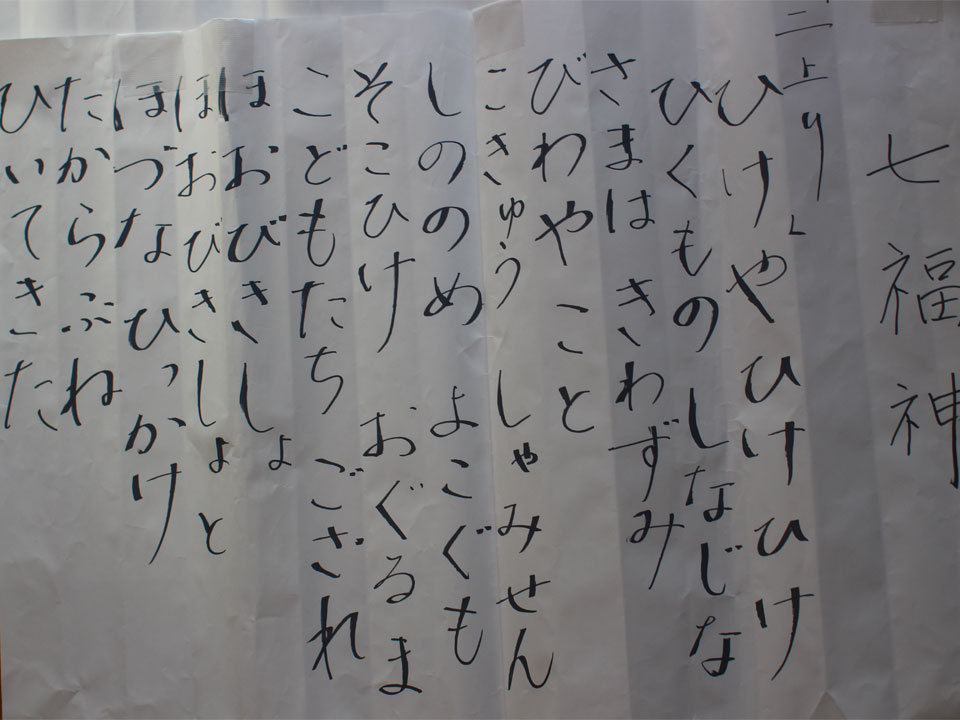 七福神
二上り
ひけや ひけひけ
ひくもの しなじな
さまは きさわずみ
びわや こと
こきゅう しゃみせん
しののめ よこぐも
そこひけ おぐるま
こどもたち ござれ
ほおびき しょ
ほおびき しょと
ほづな ひっかけ
たからぶね
ひいてきた